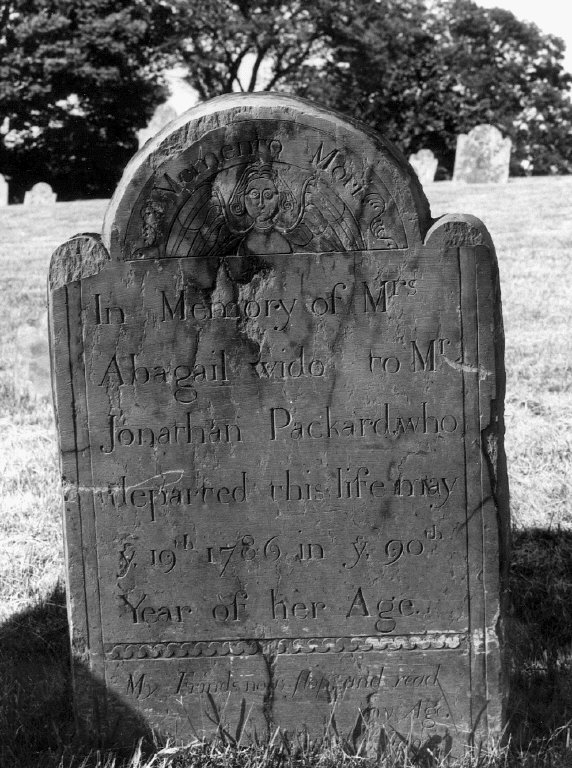 Memento Mori
In Memory of Mrs
Abagail wido to Mr
Jonathan Packard,who
departed this life may
y. 19th 1786 in y. 90th
Year of her Age.
My Frinds now stop and read
my Age